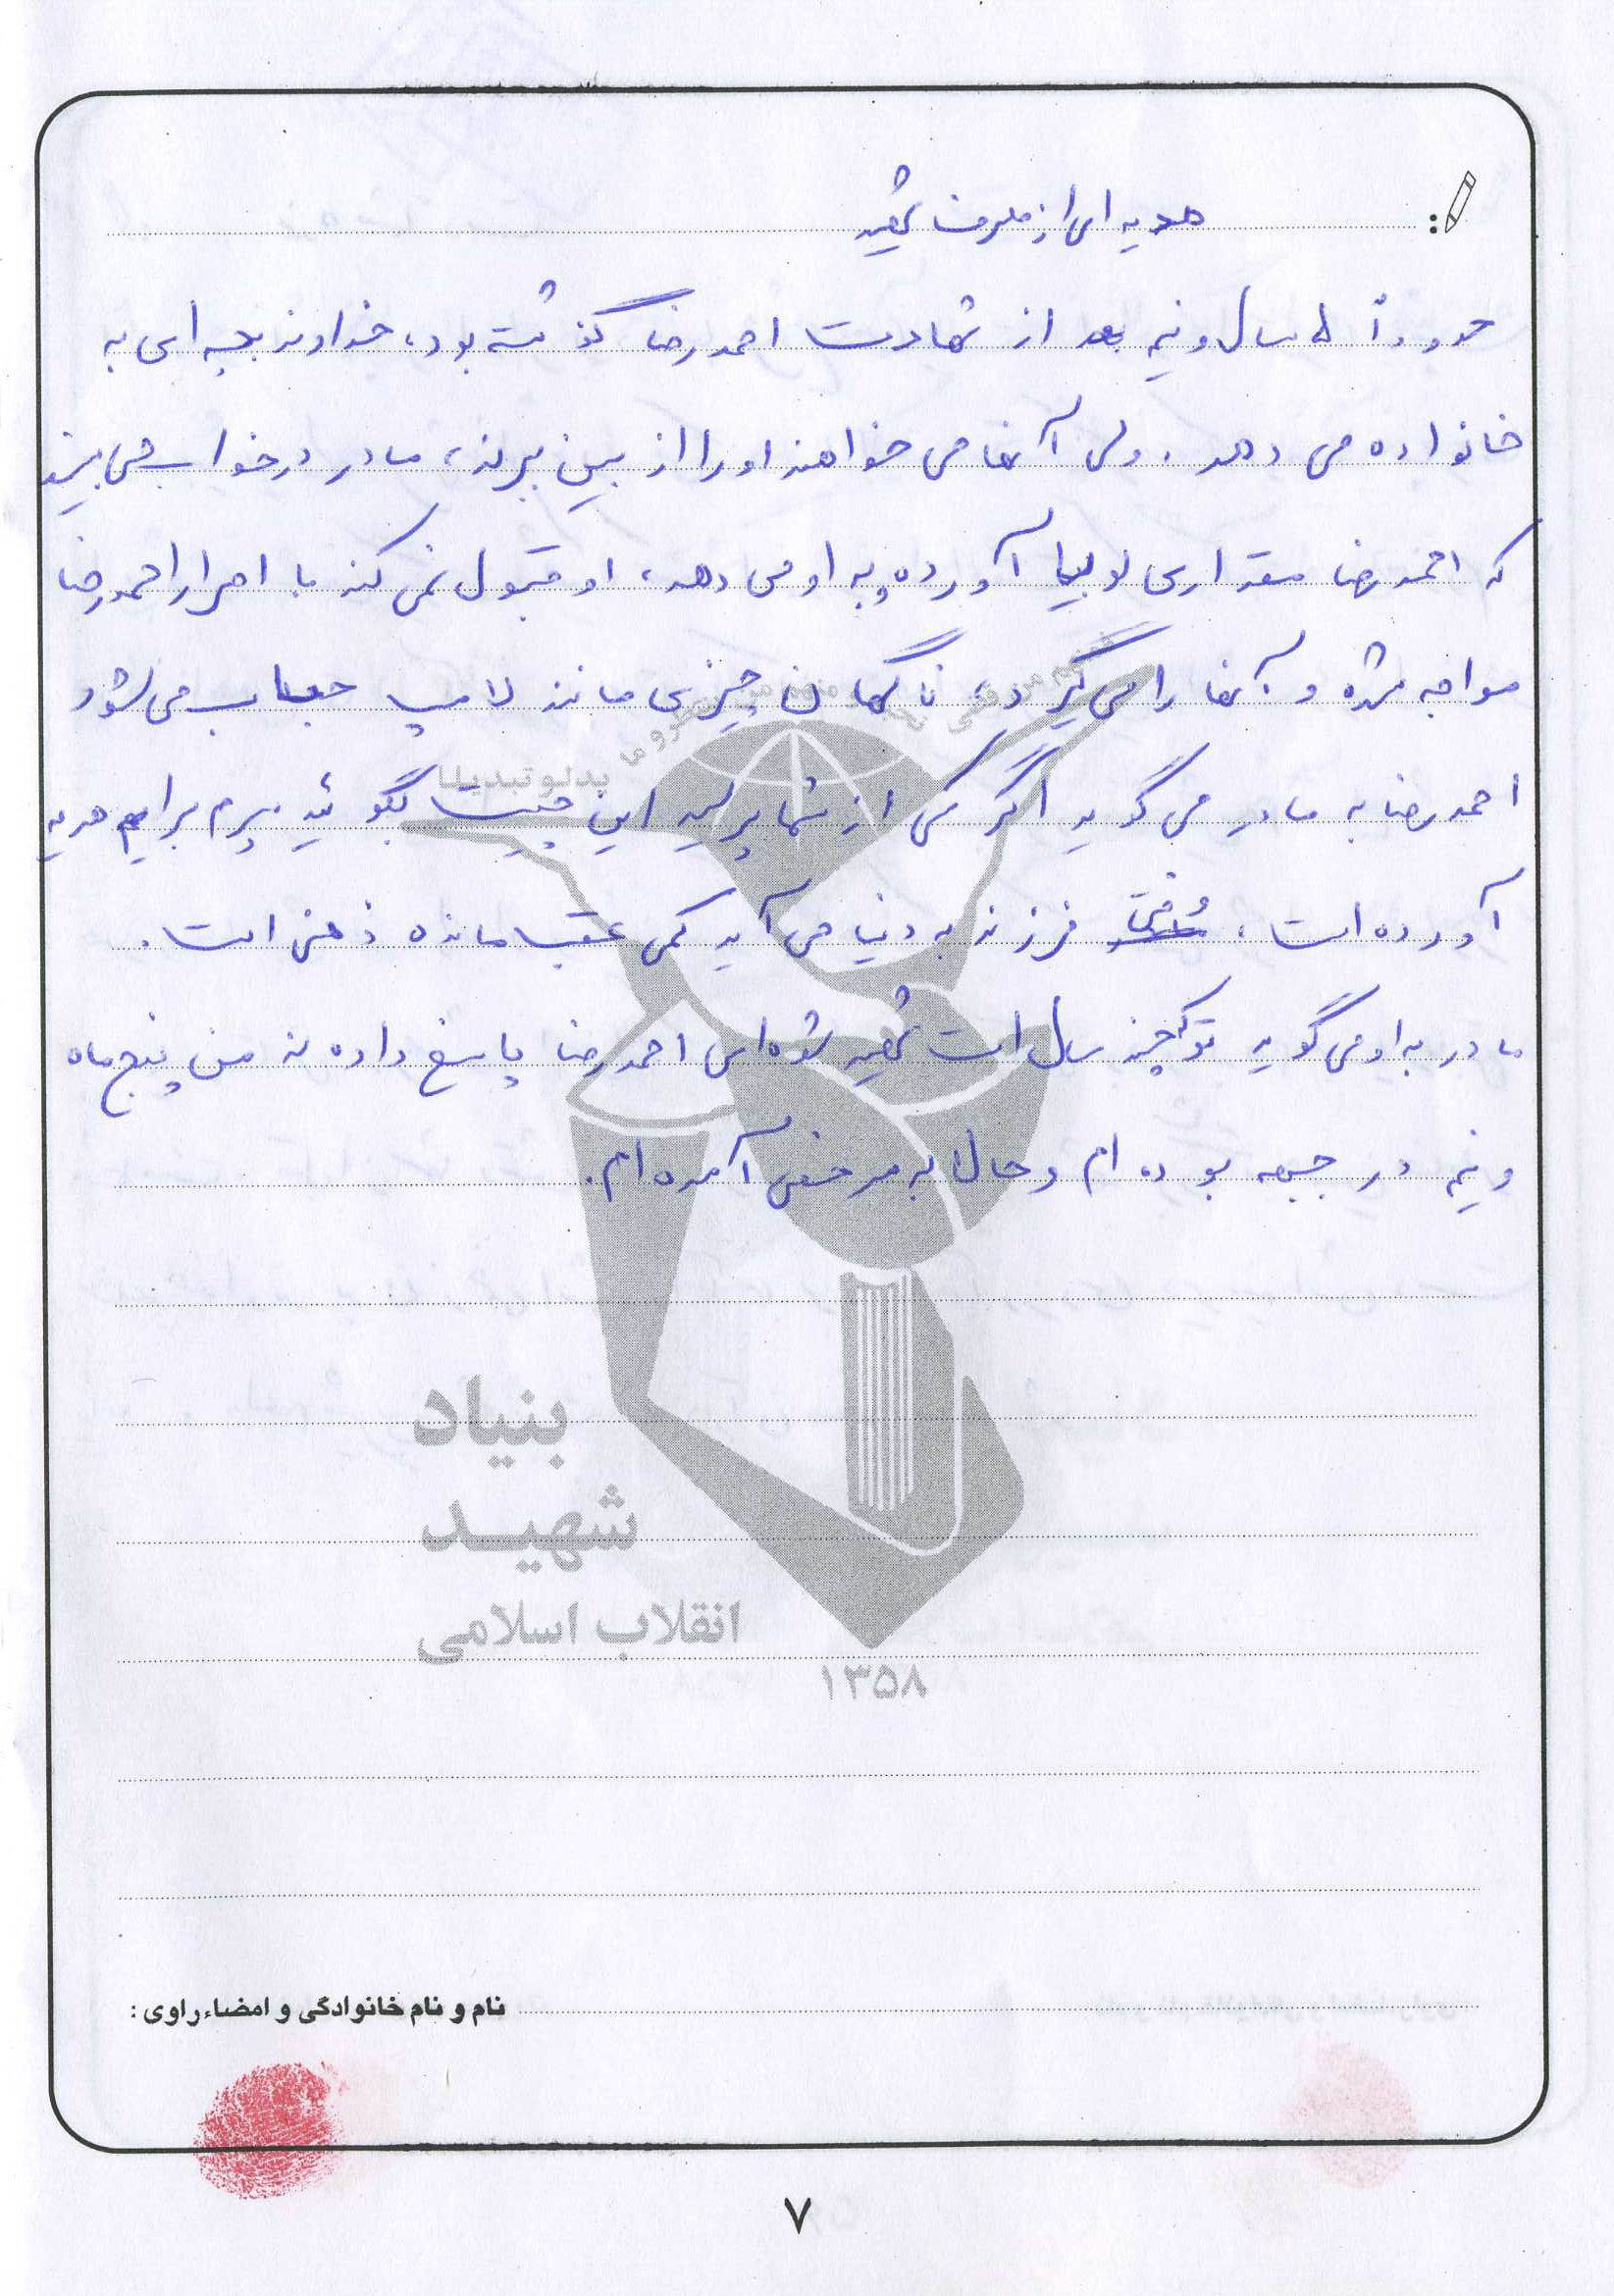 هدیه ای از طرف شهید
حدوداً ۵ سال و نیم بعد از شهادت احمدرضا گذشته بود، خداوند بچه ای به
خانواده می دهد. ولی آنها می خواهند او را از بین ببرند، مادر در خواب می بیند
که احمدرضا مقداری لوبیا آورده و به او می دهد، او قبول نمی کند با اصرار احمدرضا
مواجه شده و آنها را می گیرد، ناگهان چیزی مانند لامپ حباب می شود
احمدرضا به مادر می گوید اگر کسی از شما پرسید این چیست بگوئید پسرم برایم هدیه
آورده است، وقتی فرزند به دنیا می آید کمی عقب مانده ذهنی است.
مادر به او می گوید تو که چند سال است شهید شده ای احمدرضا پاسخ داده نه من پنج ماه
و نیم در جبهه بوده ام و حالا به مرخصی آمده ام.
بنیاد
شهید
انقلاب اسلامی
۱۳۵۸
نام و نام خانوادگی و امضاء راوی :
۷